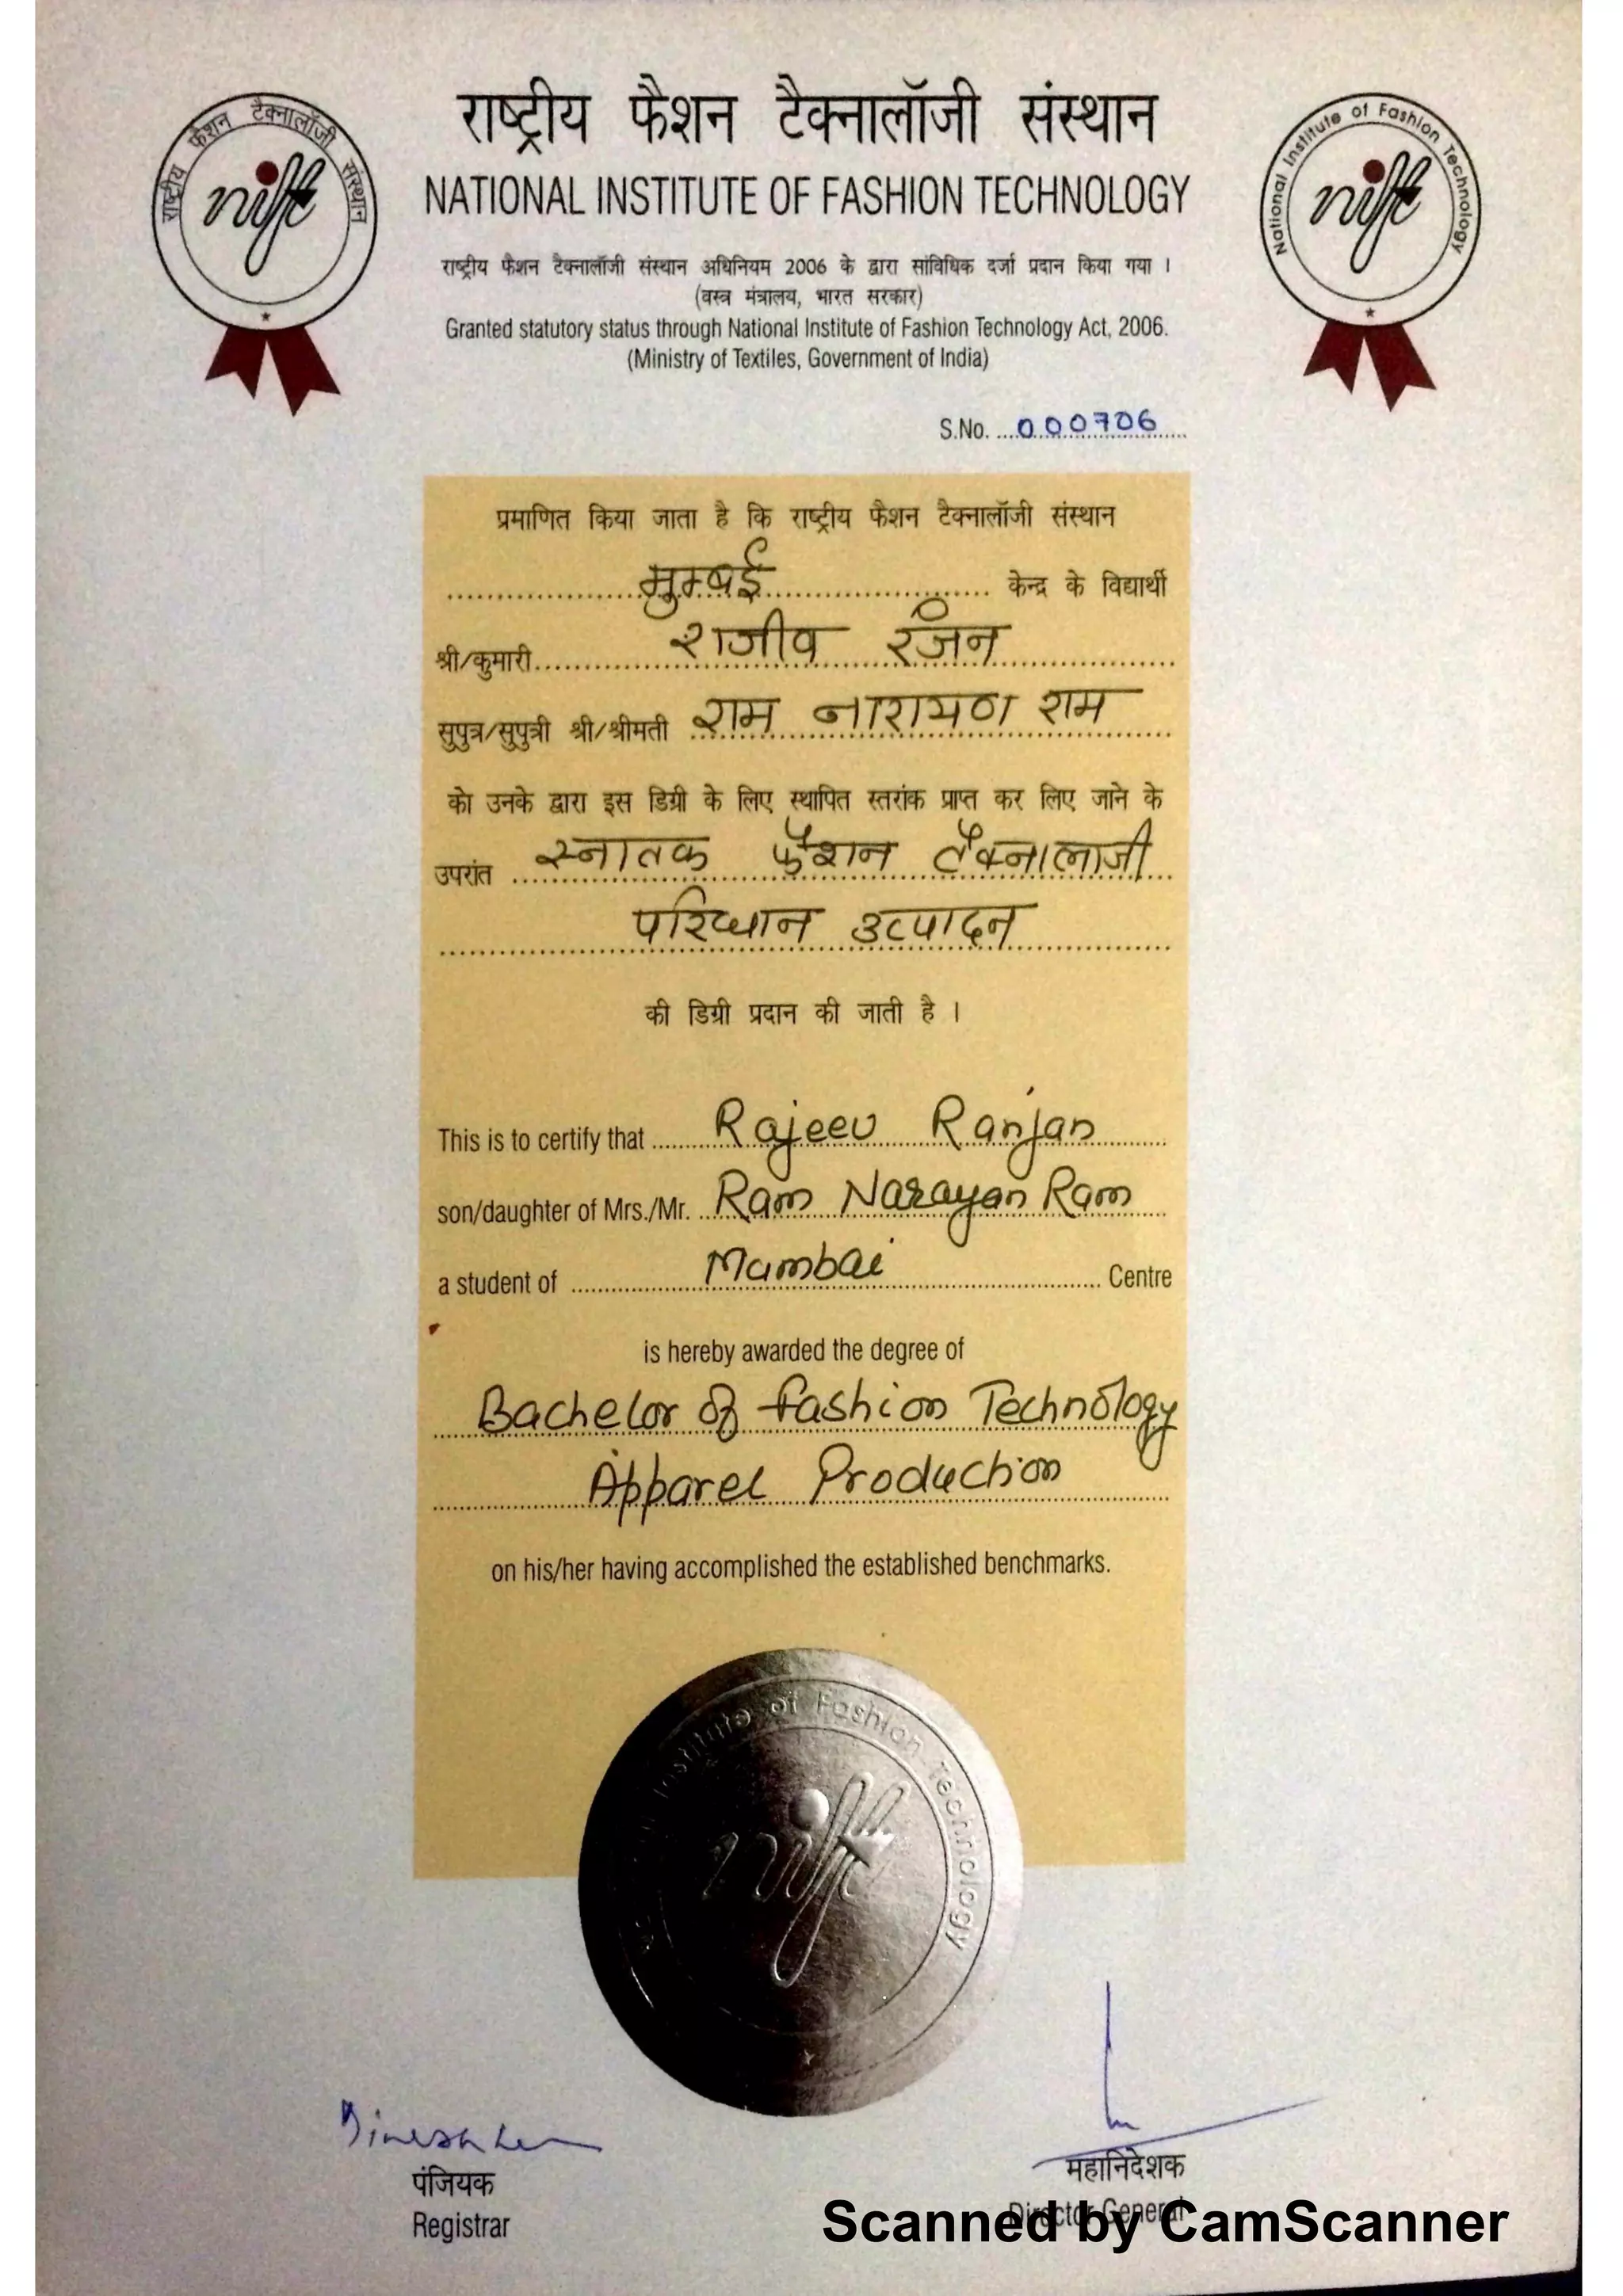 राष्ट्रीय फैशन टैक्नालॉजी संस्थान
NATIONAL INSTITUTE OF FASHION TECHNOLOGY
राष्ट्रीय फैशन टैक्नालॉजी संस्थान
nift
National Institute of Fashion Technology
nift
राष्ट्रीय फैशन टैक्नालॉजी संस्थान अधिनियम 2006 के द्वारा सांविधिक दर्जा प्रदान किया गया ।
(वस्त्र मंत्रालय, भारत सरकार)
Granted statutory status through National Institute of Fashion Technology Act, 2006.
(Ministry of Textiles, Government of India)
S.No. 000706
प्रमाणित किया जाता है कि राष्ट्रीय फैशन टैक्नालॉजी संस्थान
मुम्बई केन्द्र के विद्यार्थी
श्री/कुमारी राजीव रंजन
सुपुत्र/सुपुत्री श्री/श्रीमती राम नारायण राम
को उनके द्वारा इस डिग्री के लिए स्थापित स्तरांक प्राप्त कर लिए जाने के
उपरांत स्नातक फैशन टैक्नालाजी
परिधान उत्पादन
की डिग्री प्रदान की जाती है ।
This is to certify that Rajeev Ranjan
son/daughter of Mrs./Mr. Ram Narayan Ram
a student of Mumbai Centre
is hereby awarded the degree of
Bachelor of Fashion Technology
Apparel Production
on his/her having accomplished the established benchmarks.
Institute of Fashion Technology
nift
पंजियक
Registrar
महानिदेशक
Director General
Scanned by CamScanner